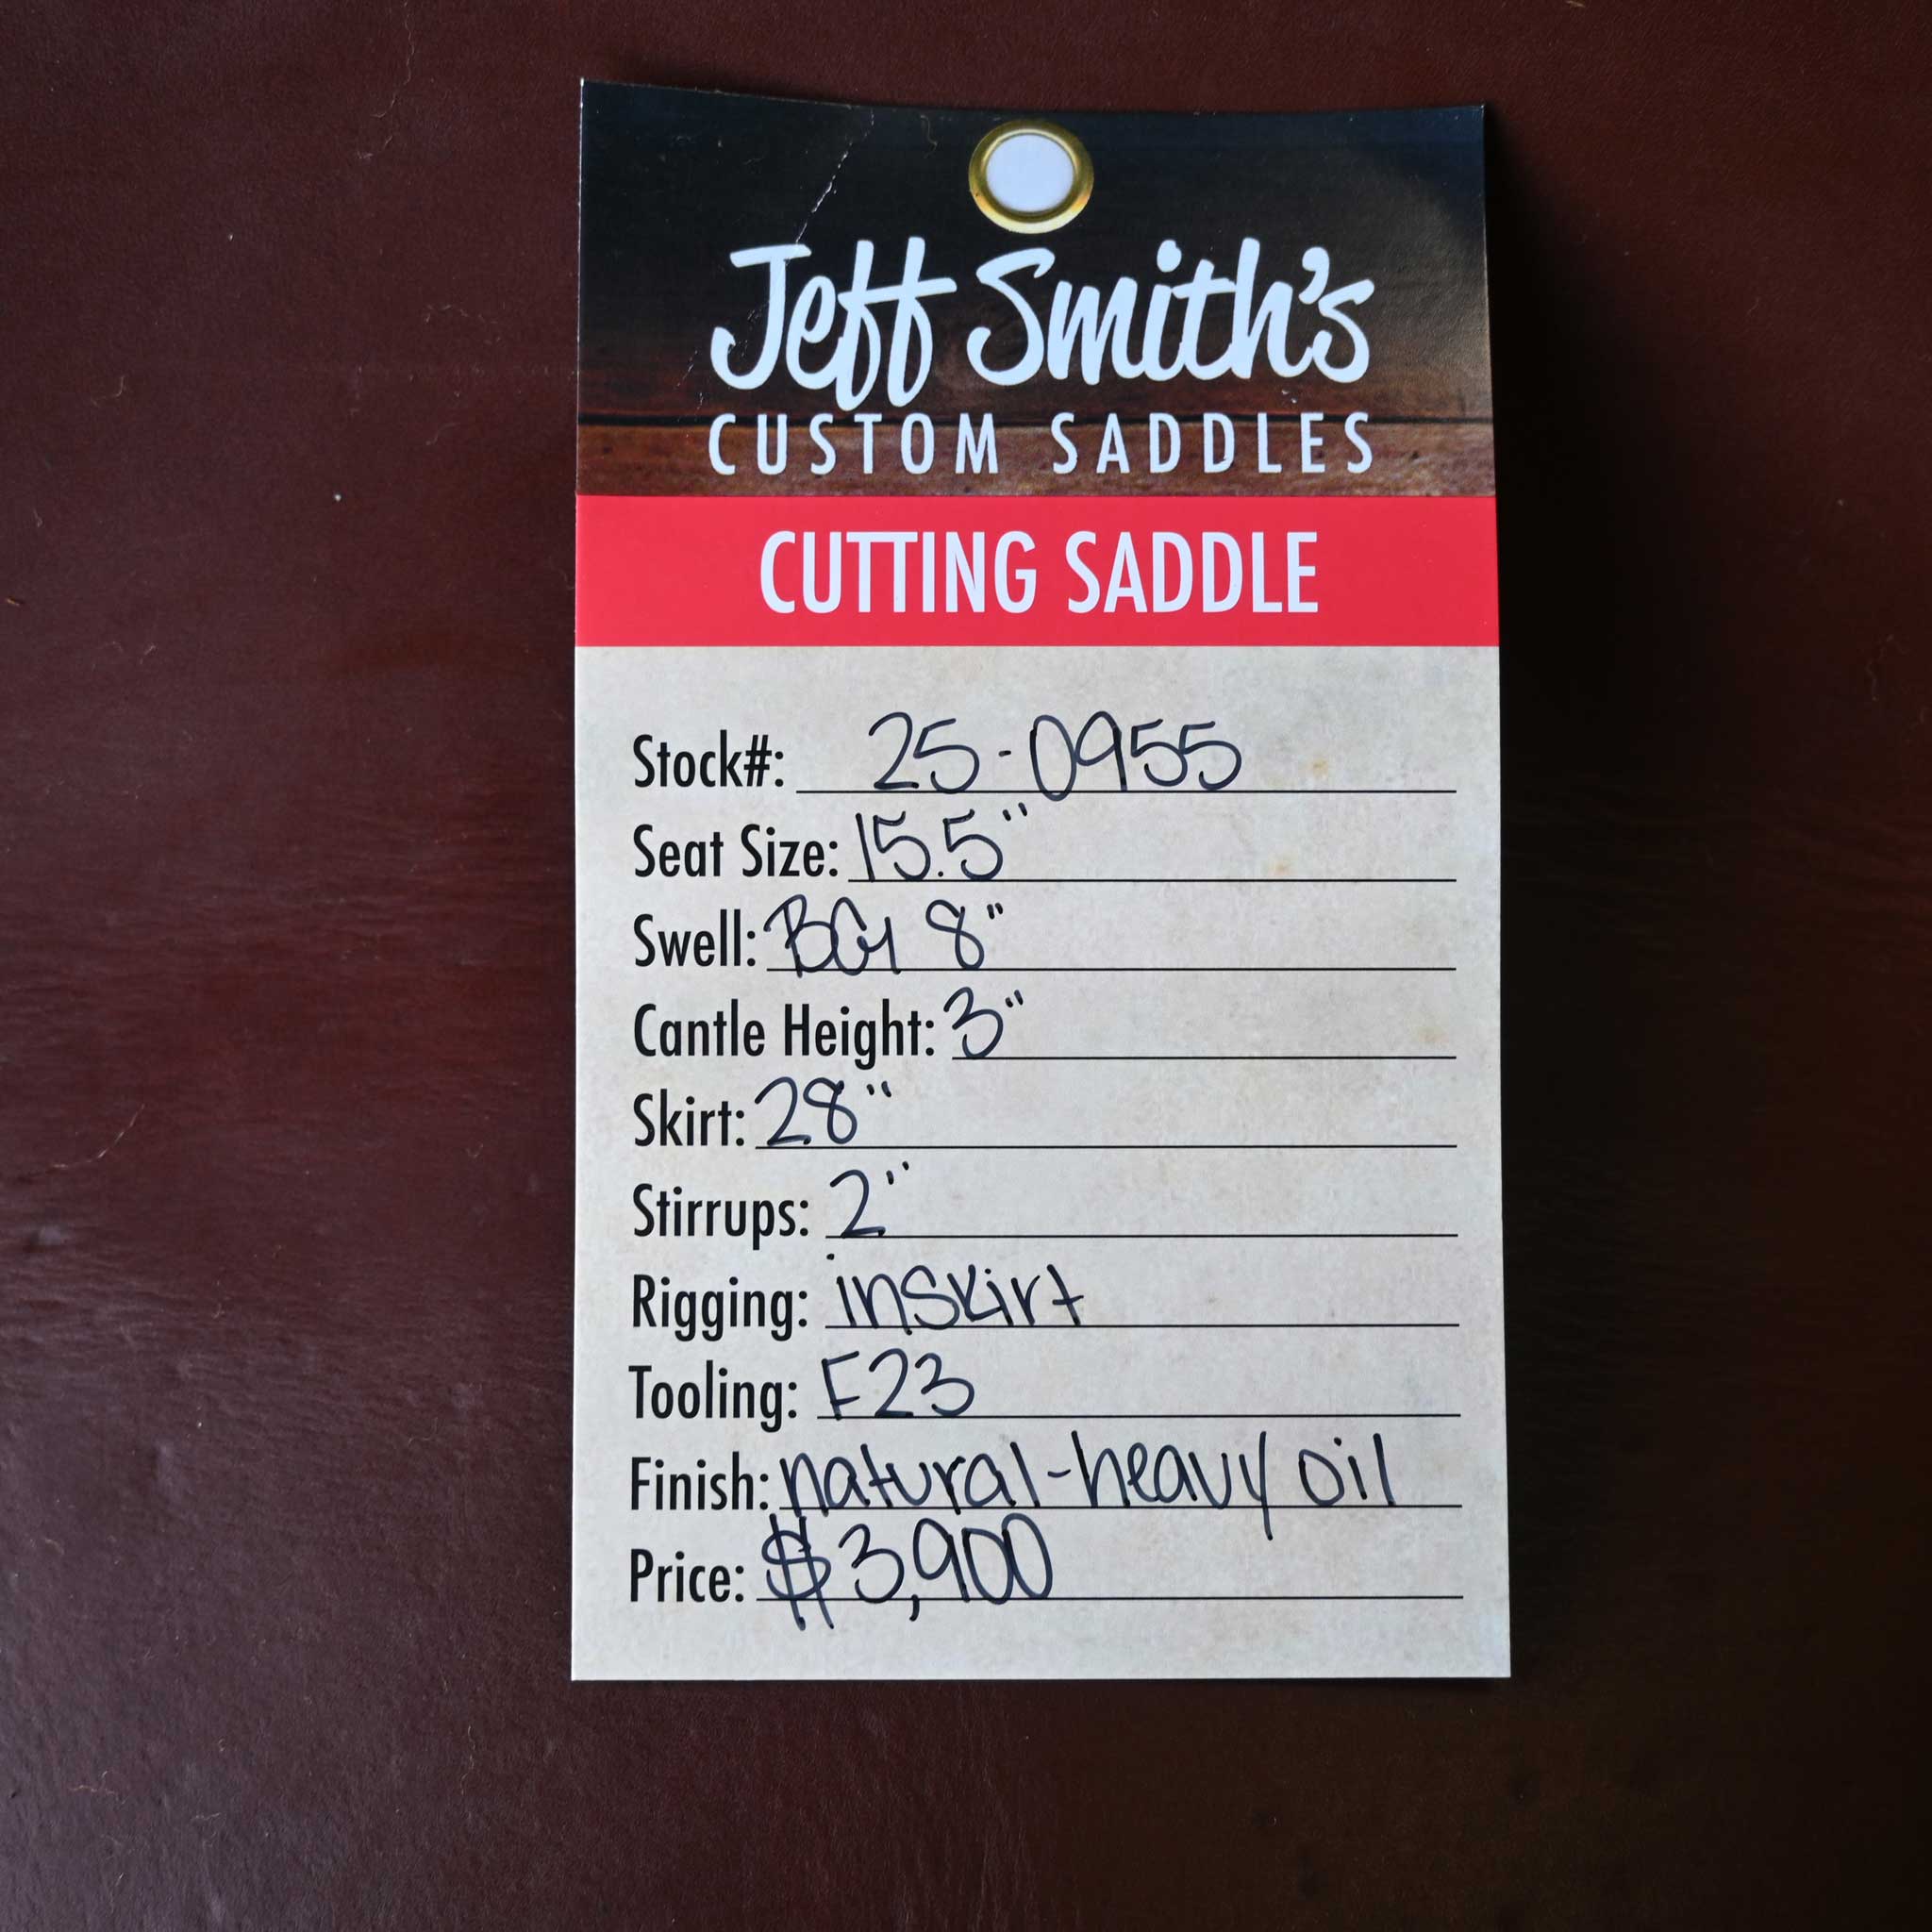 Jeff Smith's
CUSTOM SADDLES
CUTTING SADDLE
Stock#: 25-0955
Seat Size: 15.5"
Swell: BG 8"
Cantle Height: 3"
Skirt: 28"
Stirrups: 2"
Rigging: inskirt
Tooling: F23
Finish: natural-heavy oil
Price: $3,900